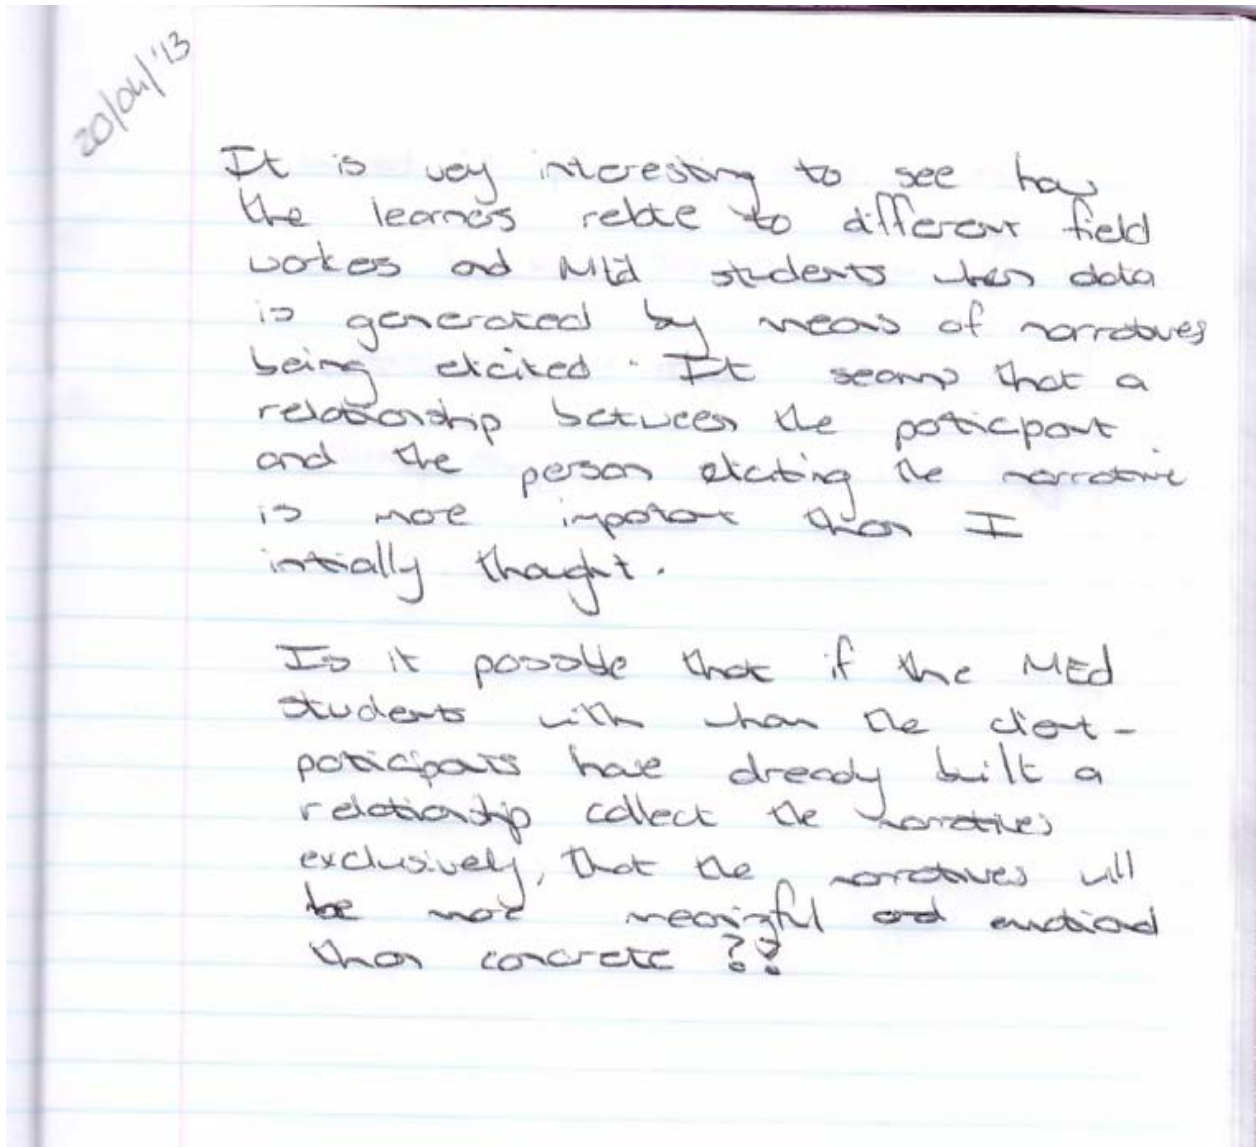 20/04/'13
It is very interesting to see how
the learners relate to different field
workers and MEd students when data
is generated by means of narratives
being elicited. It seems that a
relationship between the participant
and the person eliciting the narrative
is more important than I
initially thought.
Is it possible that if the MEd
students with whom the client-
participants have already built a
relationship collect the narratives
exclusively, that the narratives will
be more meaningful and emotional
than concrete ??